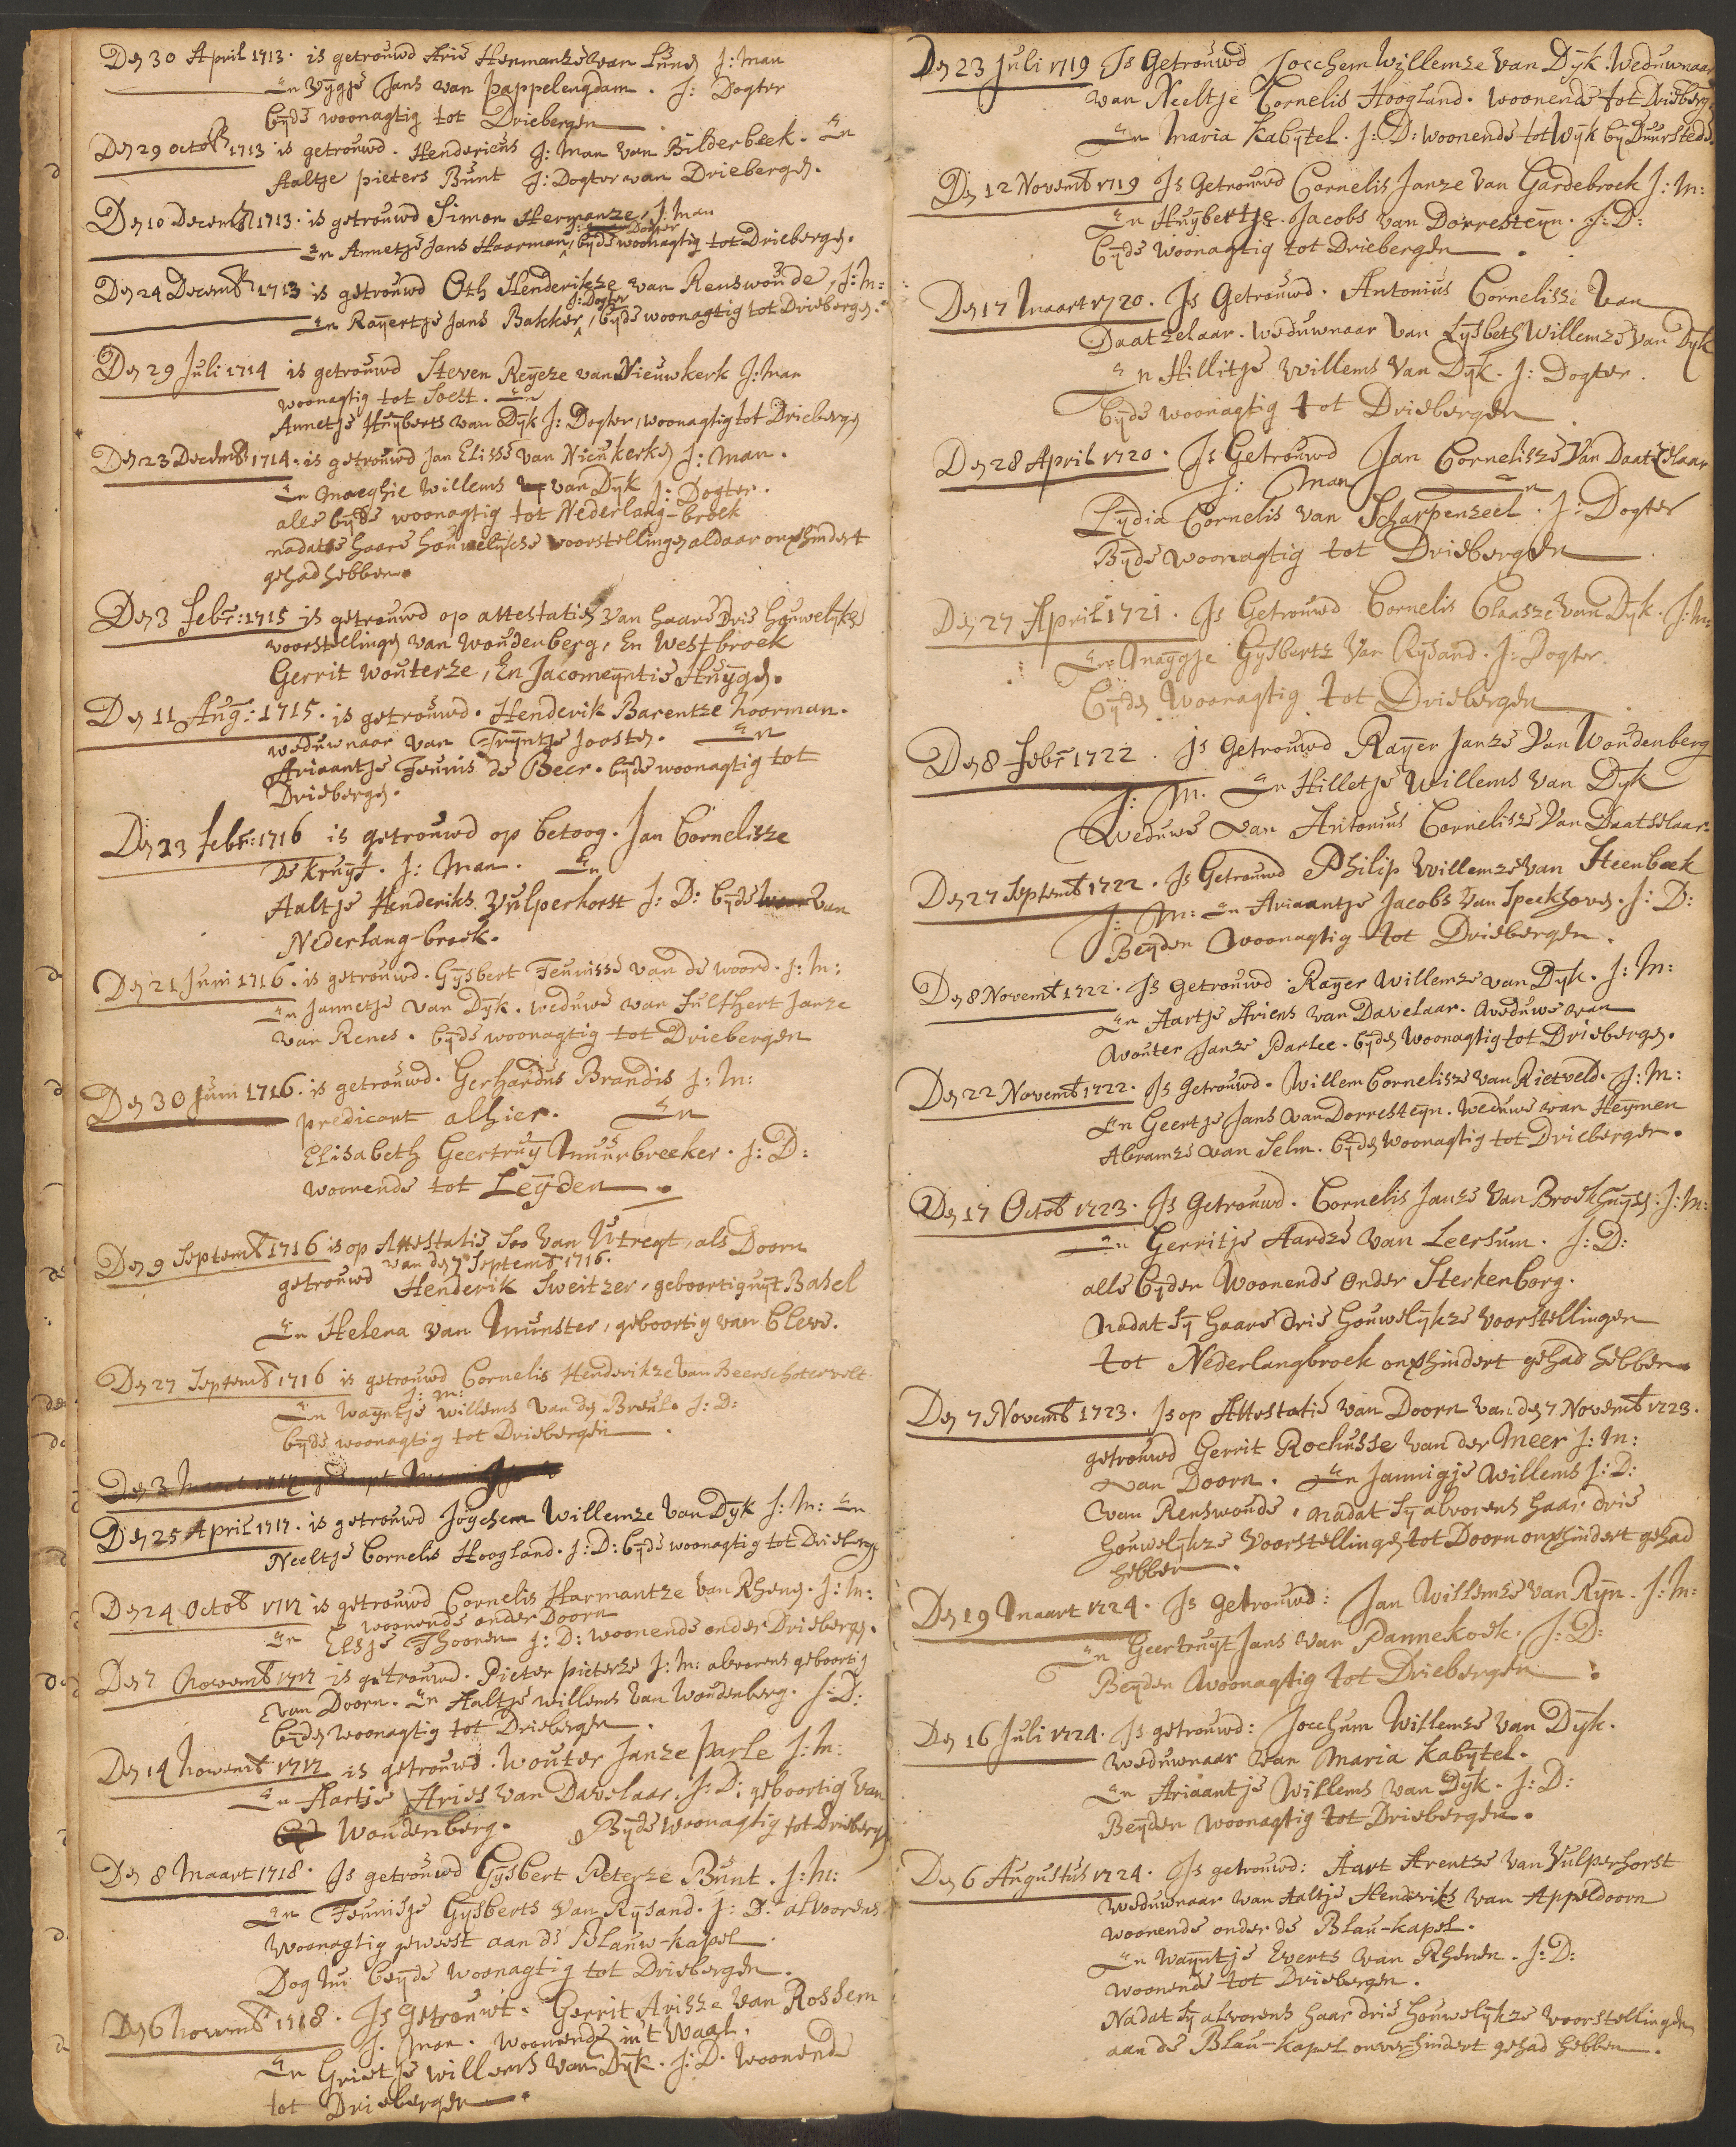 Den 30 April 1713. is getrouwd Arie Hermanze van Lunen J: Man
En Wijgje Jans van Pappelengdam. J: Dogter
beyde woonagtig tot Driebergen
Den 29 octob 1713 is getrouwd. Hendericus J: Man van Bilderbeek. En
Aaltje pieters Bunt J: Dogter van Driebergen.
Den 10 Decemb 1713. is getrouwd Simon Hermanze, J: Man
J: Dogter
En Annetje Jans Haarman, beyde woonagtig tot Driebergen.
Den 24 Decemb 1713 is getrouwd Oth Henderikze van Renswoude, J: M:
J: Dogter
En Rayertje Jans Bakker, beyde woonagtig tot Driebergen.
Den 29 Juli 1714 is getrouwd Steven Reyerze van Nieuwkerk J: Man
woonagtig tot Soest. En
Annetje Huyberts van Dyk J: Dogter, woonagtig tot Driebergen
Den 23 Decemb 1714. is getrouwd Jan Elisse van Nieukerken J: Man.
En Maeghie Willems van Dyk J: Dogter.
alle beyde woonagtig tot Nederlang-broek
nadat se haare houwelykse voorstellingen aldaar onverhindert
gehad hebben.
Den 3 Febr: 1715 is getrouwd op attestatien van haare drie houwelykse
voorstellingen van Woudenberg, En Westbroek
Gerrit Wouterze, En Jacomeyntie Huygen.
Den 11 Aug: 1715. is getrouwd. Henderik Barentze Noorman.
weduwnaar van Tryntje Joosten. En
Ariaantje Teunis de Beer. beyde woonagtig tot
Driebergen.
Den 23 Febr: 1716 is getrouwd op betoog. Jan Cornelisze
de kruyf. J: Man. En
Aaltje Henderiks Vulperhorst J: D: beyde van
Nederlang-broek.
Den 21 Juni 1716. is getrouwd. Gysbert Teunisse van de woord. J: M:
En Jannetje van Dyk. weduwe van Fulthert Janze
van Renes. beyde woonagtig tot Driebergen
Den 30 Juni 1716. is getrouwd. Gerhardus Brandis J: M:
predicant alhier. En
Elisabeth Geertruy Muurbreeker. J: D:
woonende tot Leyden.
Den 9 Septemb 1716 is op Attestatie soo van Utregt, als Doorn
van den 7 Septemb 1716.
getrouwd Henderik Sweitzer, geboortig uyt Basel
En Helena van Munster, geboortig van Cleve.
Den 27 Septemb 1716 is getrouwd Cornelis Henderikze van Beerschotervelt.
J: M:
En Wayntje Willems van den Breul. J: D:
beyde woonagtig tot Driebergen.
Den 25 April 1717. is getrouwd Joychem Willemze van Dyk J: M: En
Neeltje Cornelis Hoogland. J: D: beyde woonagtig tot Driebergen
Den 24 Octob 1717 is getrouwd Cornelis Harmantze van Rhenen. J: M:
woonende onder Doorn
En Elsje Thoonen J: D: woonende onder Driebergen.
Den 7 Novemb 1717 is getrouwd. Pieter pieterze J: M: alvorens geboortig
van Doorn. En Aaltje willems van Woudenberg. J: D:
beyden woonagtig tot Driebergen.
Den 14 Novemb 1717 is getrouwd. Wouter Janze Parle J: M:
En Aartje Aries van Davelaar. J: D: geboortig van
Woudenberg. Byde woonagtig tot Driebergen
Den 8 Maart 1718. Is getrouwd Gysbert Peterze Bunt. J: M:
En Teunisje Gysberts van Rysand. J: D: alvoorens
woonagtig geweest aan de Blauw-kapel.
Dog nu beyde woonagtig tot Driebergen.
Den 6 Novemb 1718. Is getrouwt. Gerrit Arisze van Rossem
J: Man. woonende in't Waal.
En Grietje willems van Dyk. J: D. woonend
tot Driebergen.
Den 23 Juli 1719 Is Getrouwd Jocchem Willemze van Dyk. Weduwnaar
van Neeltje Cornelis Hoogland. woonende tot Driebergen
En Maria Kabytel. J: D: woonende tot Wyk by Duurstede.
Den 12 Novemb 1719 Is Getrouwd Cornelis Janze van Gardebroek J: M:
En Huybertje Jacobs van Dorresteyn. J: D:
beyde woonagtig tot Driebergen.
Den 17 Maart 1720. Is Getrouwd. Antonius Cornelisse van
Daatzelaar. weduwnaar van Lysbeth Willemze van Dyk
En Hillitje Willems van Dyk. J: Dogter.
beyde woonagtig tot Driebergen
Den 28 April 1720. Is Getrouwd Jan Cornelisze van Daatselaar
J: Man En
Lydia Cornelis van Scharpenzeel. J: Dogter
Byde woonagtig tot Driebergen.
Den 27 April 1721. Is Getrouwd Cornelis Claasze van Dyk. J: M:
En Maygje Gysberts van Rysand. J: Dogter.
Byden woonagtig tot Driebergen.
Den 8 Febr 1722. Is Getrouwd Rayer Janze van Woudenberg
J: M. En Hilletje Willems van Dyk
weduwe van Antonius Cornelisze van Daatselaar.
Den 27 Septemb 1722. Is Getrouwd Philip Willemze van Steenbeek
J: M: En Ariaantje Jacobs van Speekhoven. J: D:
Beyden woonagtig tot Driebergen.
Den 8 Novemb 1722. Is getrouwd. Rayer Willemze van Dyk. J: M:
En Aartje Ariens van Davelaar. weduwe van
Wouter Janze Parlee. byden woonagtig tot Driebergen.
Den 22 Novemb 1722. Is getrouwd. Willem Cornelisze van Rietveld. J: M:
En Geertje Jans van Dorresteyn. weduwe van Heymen
Abramze van Selm. byden woonagtig tot Driebergen.
Den 17 Octob 1723. Is Getrouwd. Cornelis Janze van Broekhuysen. J: M:
En Gerritje Aardze van Leersum. J: D:
alle byden woonende onder Sterkenborg.
nadat sy haare drie houwelykze voorstellingen
tot Nederlangbroek onverhindert gehad hebben.
Den 7 Novemb 1723. Is op Attestatie van Doorn van den 7 Novemb 1723.
getrouwd Gerrit Rochusse van der Meer J: M:
van Doorn. En Jannigje Willems J: D:
van Renswoude, nadat sy alvorens haar drie
houwelykze voorstellingen tot Doorn onverhindert gehad
hebben.
Den 19 Maart 1724. Is getrouwd: Jan Willemze van Ryn. J: M:
En Geertruyt Jans van Pannekoek. J: D:
Beyden woonagtig tot Driebergen.
Den 16 Juli 1724. Is getrouwd: Jocchum Willemze van Dyk.
weduwnaar van Maria Kabytel.
En Ariaantje Willems van Dyk. J: D:
Beyden woonagtig tot Driebergen.
Den 6 Augustus 1724. Is getrouwd: Aart Arentze van Vulperhorst
weduwnaar van Aaltje Henderiks van Appeldoorn
woonende onder de Blau-kapel.
En Wayntje Everts van Rhenen. J: D:
woonende tot Driebergen.
Nadat sy alvorens haar drie houwelykze voorstellingen
aan de Blau-kapel onverhindert gehad hebben.